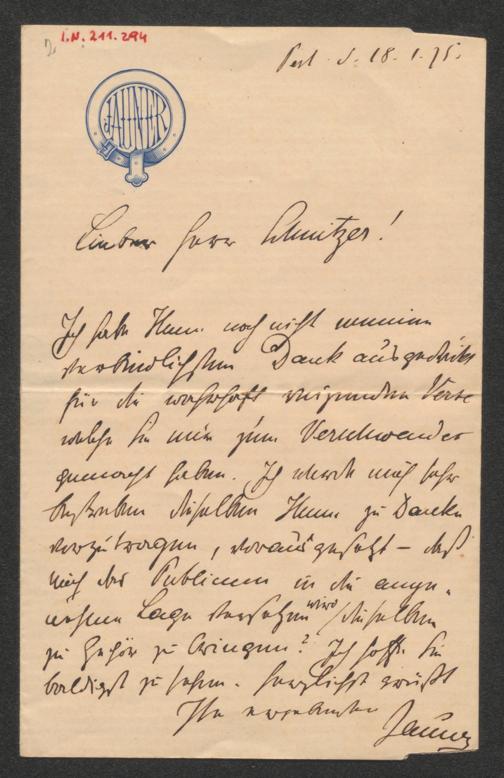 2. I.N. 211.294
18.1.75.
JAUNER
Lieber Herr Schnitzer!
Ich habe Ihnen noch nicht meinen
verbindlichsten Dank ausgedrückt
für die wahrhaft reizenden Verse
welche Sie mir zum Verschwender
gemacht haben. Ich werde mich sehr
bestreben dieselben Ihnen zu Danke
vorzutragen, vorausgesetzt – daß
mich das Publicum in die ange-
nehme Lage versetzen wird dieselben
zu Gehör zu bringen? Ich hoffe Sie
baldigst zu sehen. Herzlichst grüßt
Ihr ergebenster
Jauner